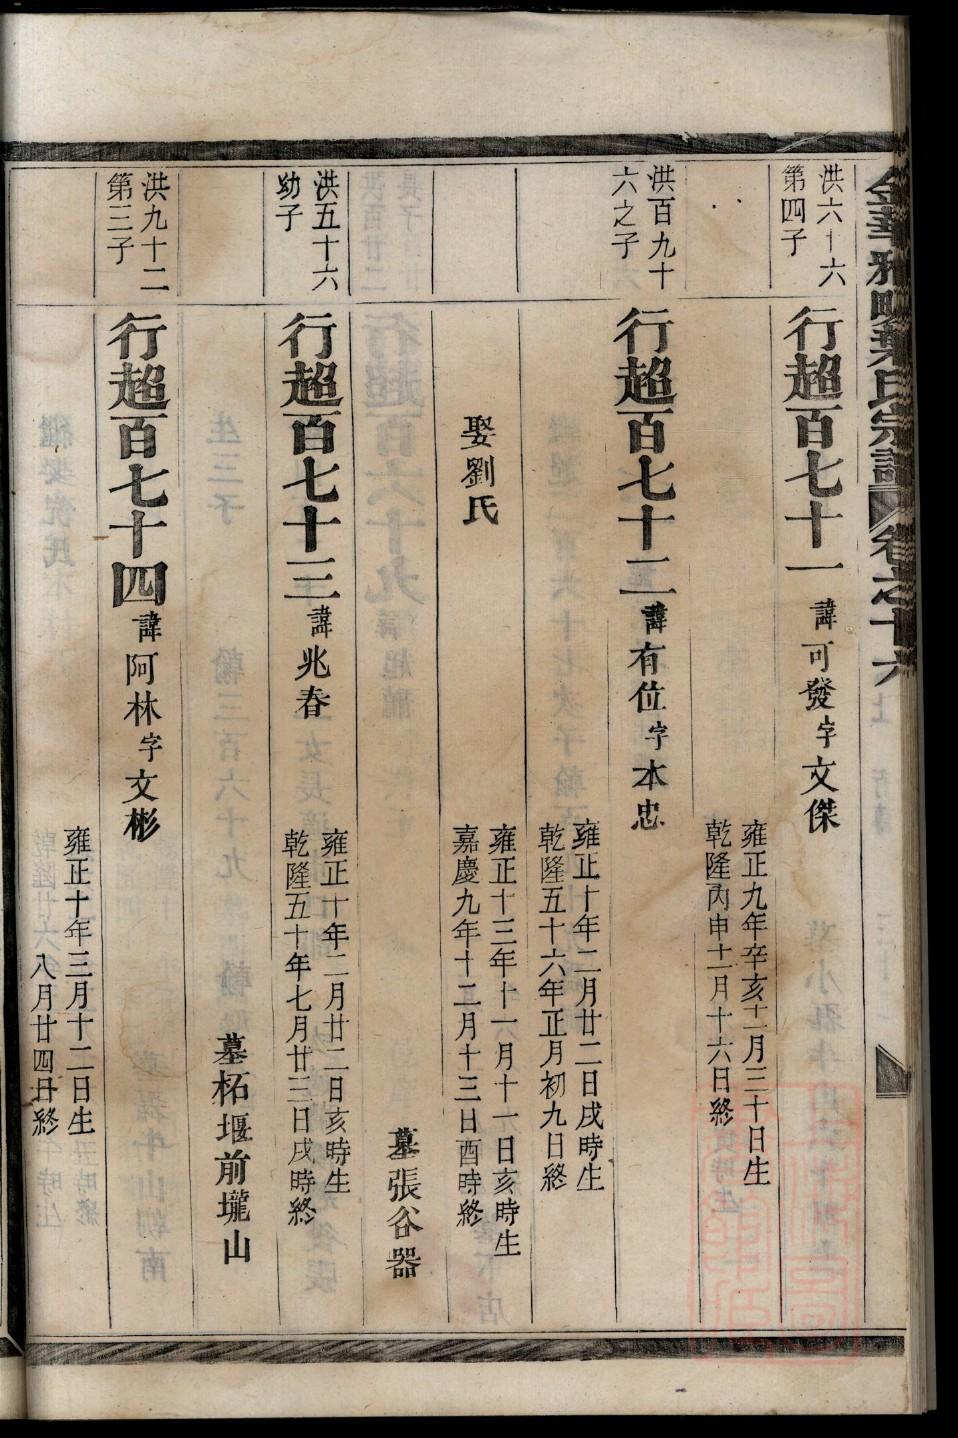 金華雅畈葉氏宗譜
卷之十六
洪六十六
第四子
行超百七十一 諱可發字文傑
雍正九年辛亥十二月三十日生
乾隆丙申十一月十六日終
洪百九十
六之子
行超百七十二 諱有位字本忠
雍正十年二月廿二日戌時生
乾隆五十六年正月初九日終
娶劉氏
雍正十三年十一月十一日亥時生
嘉慶九年十二月十三日酉時終
墓張谷器
洪五十六
幼子
行超百七十三 諱兆春
雍正十年二月廿二日亥時生
乾隆五十年七月廿三日戌時終
墓柘堰前壠山
洪九十二
第三子
行超百七十四 諱阿林字文彬
雍正十年三月十二日生
八月廿四日終